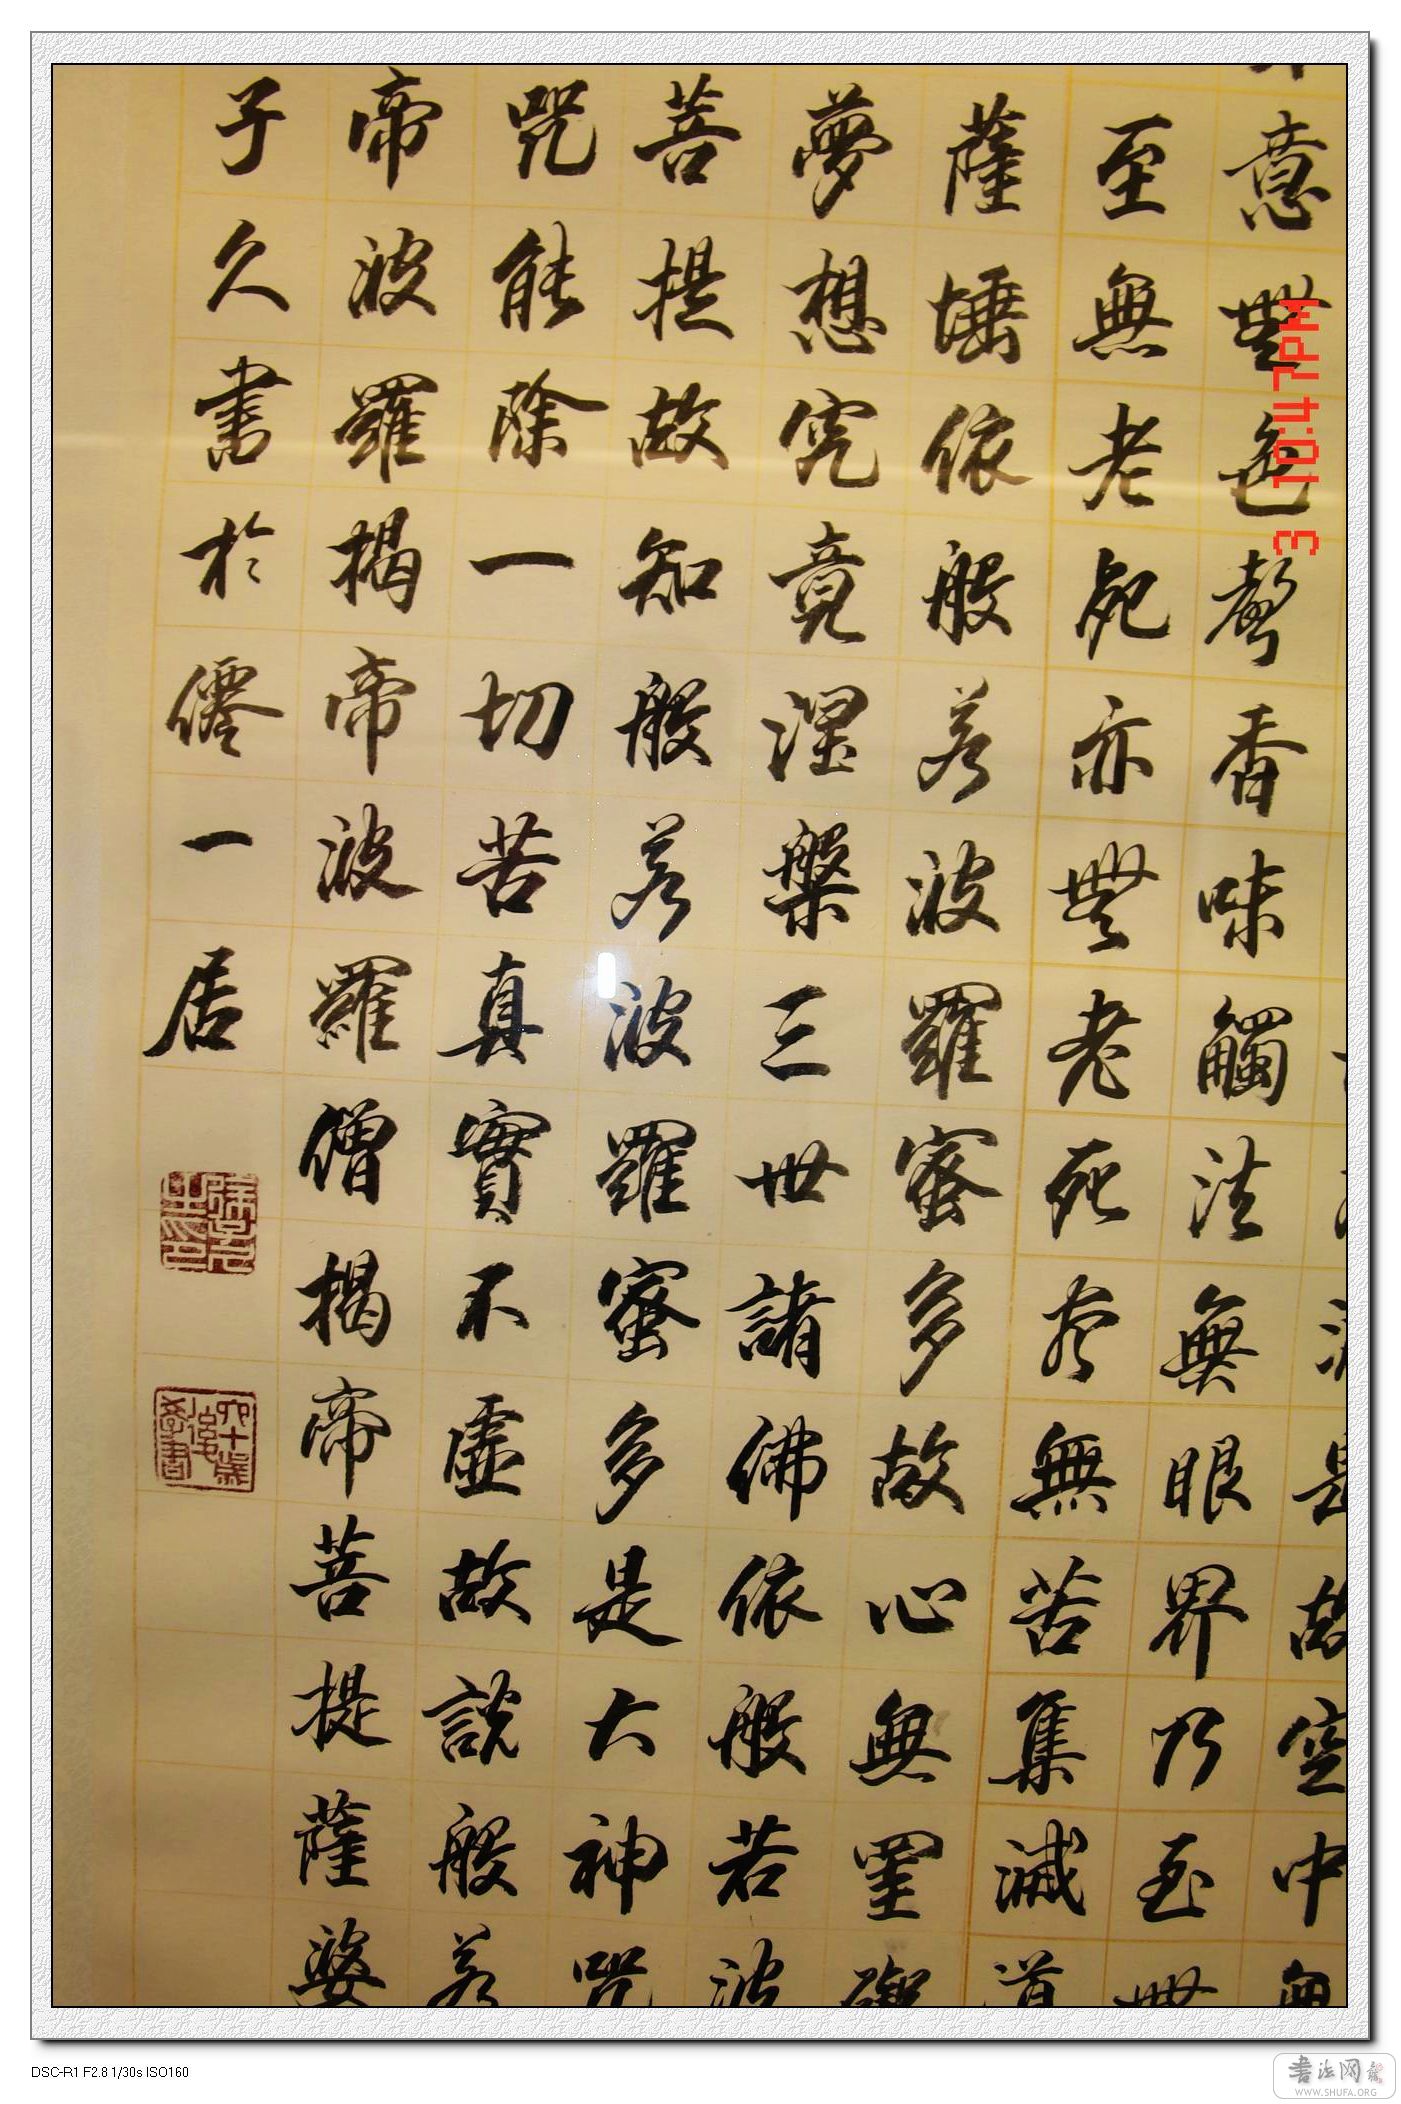 意無色聲香味觸法無眼界乃至無
至無老死亦無老死盡無苦集滅道
薩埵依般若波羅蜜多故心無罣礙
夢想究竟涅槃三世諸佛依般若波
菩提故知般若波羅蜜多是大神咒
咒能除一切苦真實不虛故說般若
帝波羅揭帝波羅僧揭帝菩提薩婆
子久書於僊一居
3 10:47PM
DSC-R1 F2.8 1/30s ISO160
書法网
WWW.SHUFA.ORG